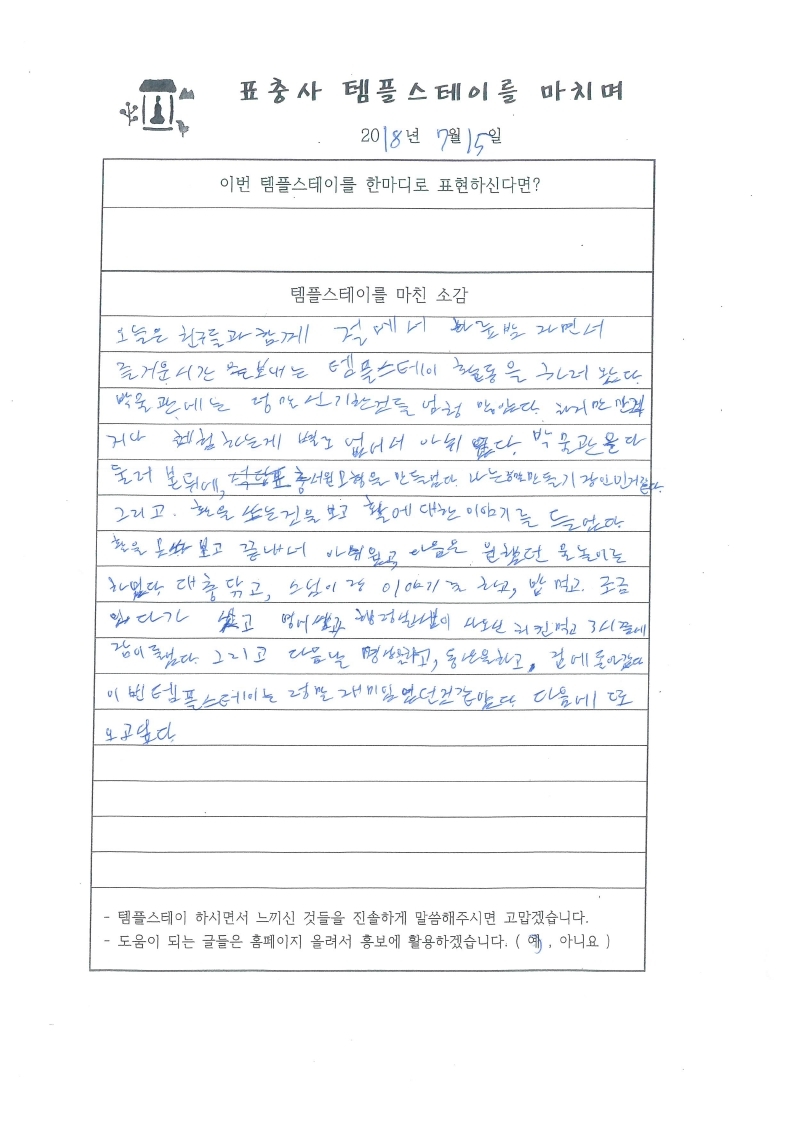 표충사 템플스테이를 마치며
2018년 7월 15일
이번 템플스테이를 한마디로 표현하신다면?
템플스테이를 마친 소감
오늘은 친구들과 함께 절에서 하룻밤 자면서
즐거운시간 보내는 템플스테이 활동을 하러 왔다.
박물관에는 정말 신기한것들 엄청 많았다. 하지만 만지
거나 체험하는게 별로 없어서 아쉬웠다. 박물관을 다
둘러 본뒤에, 표충서원모형을 만들었다. 나는 만들기 장인인거같다.
그리고. 활을 쏘는것을 보고 활에 대한 이야기를 들었다.
활을 못 보고 끝내서 아쉬웠고 다음은 원했던 물놀이를
하였다. 대충 닦고, 스님이랑 이야기도 하고, 밥 먹고. 조금
있다가 씻고 영어쌤과 사오신 치킨먹고 3시쯤에
잠이들었다. 그리고 다음날 명상을하고, 등산을하고, 집에 돌아갔다
이번템플스테이는 정말 재미있었던것같았다. 다음에 또
오고싶다.
- 템플스테이 하시면서 느끼신 것들을 진솔하게 말씀해주시면 고맙겠습니다.
- 도움이 되는 글들은 홈페이지 올려서 홍보에 활용하겠습니다. ( 예 , 아니요 )